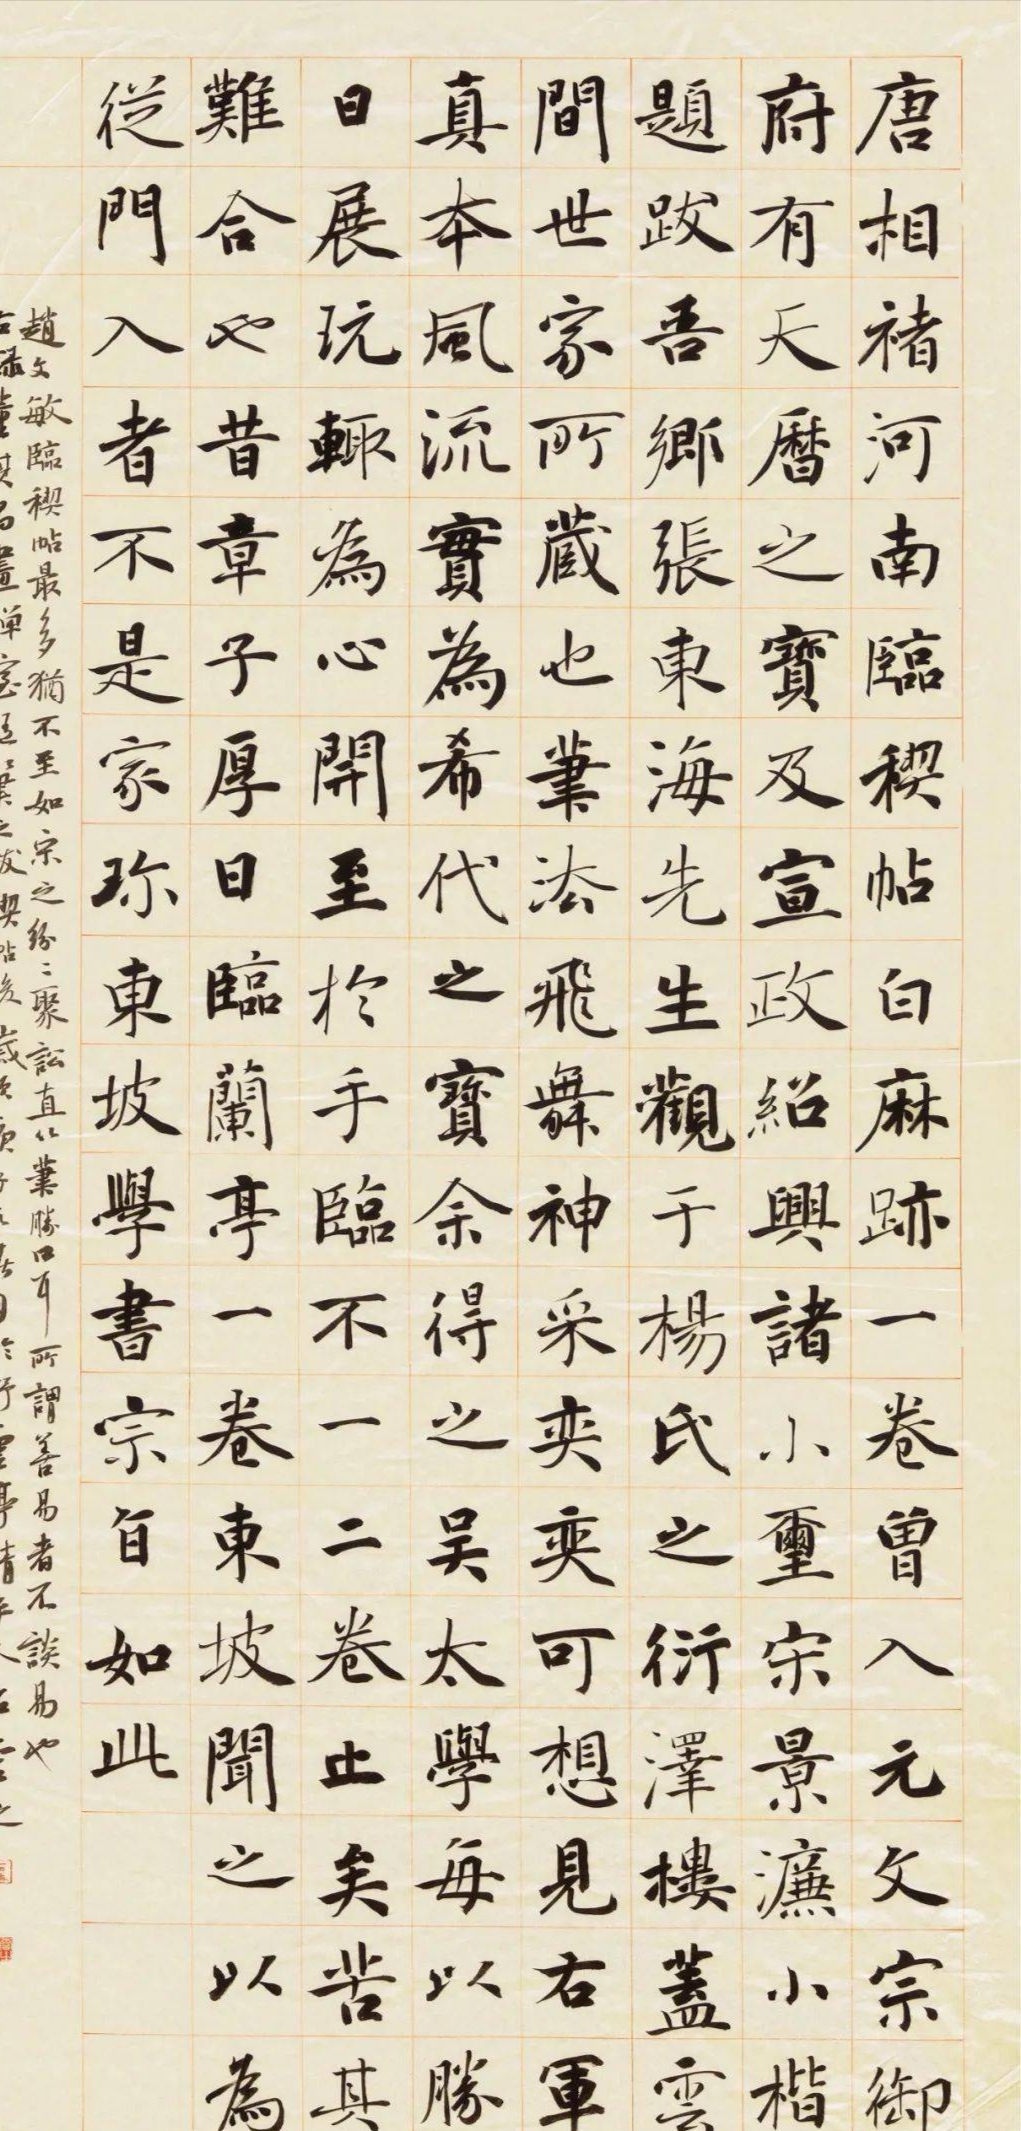 唐相褚河南臨禊帖白麻跡一卷曾入元文宗御
府有天曆之寶及宣政紹興諸小璽宋景濂小楷
題跋吾鄉張東海先生觀于楊氏之衍澤樓蓋雲
間世家所藏也筆法飛舞神采奕奕可想見右軍
真本風流實為希代之寶余得之吴太學每以勝
日展玩輒為心開至於手臨不一二卷止矣苦其
難合也昔章子厚日臨蘭亭一卷東坡聞之以為
從門入者不是家珎東坡學書宗旨如此
趙文敏臨禊帖最多猶不至如宋之紛〻聚訟直以筆勝口耳所謂善易者不談易也